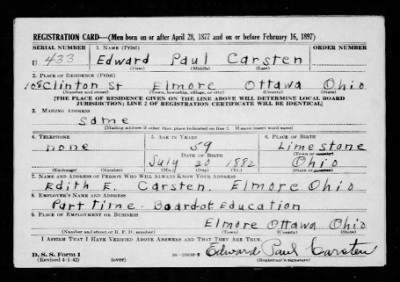 REGISTRATION CARD—(Men born on or after April 28, 1877 and on or before February 16, 1897)
SERIAL NUMBER 1. NAME (Print) ORDER NUMBER
U 433 Edward Paul Carsten
(First) (Middle) (Last)
2. PLACE OF RESIDENCE (Print)
108 Clinton St Elmore Ottawa Ohio
(Number and street) (Town, township, village, or city) (County) (State)
[THE PLACE OF RESIDENCE GIVEN ON THE LINE ABOVE WILL DETERMINE LOCAL BOARD
JURISDICTION; LINE 2 OF REGISTRATION CERTIFICATE WILL BE IDENTICAL]
3. MAILING ADDRESS
same
(Mailing address if other than place indicated on line 2. If same insert word same)
4. TELEPHONE 5. AGE IN YEARS 6. PLACE OF BIRTH
none 59 Limestone
DATE OF BIRTH (Town or county)
July 20 1882 Ohio
(Exchange) (Number) (Mo.) (Day) (Yr.) (State or country)
7. NAME AND ADDRESS OF PERSON WHO WILL ALWAYS KNOW YOUR ADDRESS
Edith E. Carsten. Elmore Ohio
8. EMPLOYER'S NAME AND ADDRESS
Part time - Board of Education
9. PLACE OF EMPLOYMENT OR BUSINESS
Elmore Ottawa Ohio
(Number and street or R. F. D. number) (Town) (County) (State)
I AFFIRM THAT I HAVE VERIFIED ABOVE ANSWERS AND THAT THEY ARE TRUE.
Edward Paul Carsten
D. S. S. Form 1
(Revised 4-1-42) (over) (Registrant's signature)